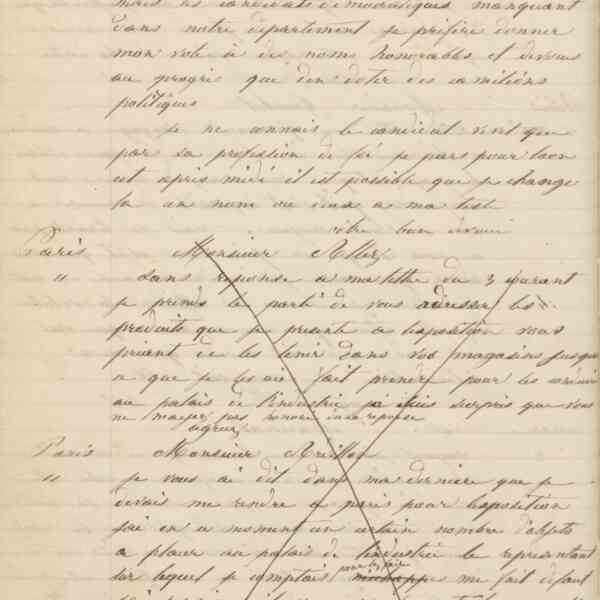 mais les candidats democratiques manquant
dans notre departement je préfère donner
mon vote à des noms honorables et devoués
au progrès que den doter des
politiques
je ne connais le candidat que
par sa profession de foi je pars pour Caen
et après midi il est possible que je change
la un nom ou deux a ma liste
votre bien devoué
Paris Monsieur
" dans reponse a ma lettre du 3 courant
je prends le parti de vous adresser les
produits que je presente a lexposition vous
priant de les tenir dans vos magasins jusqua
a que je les ai fait prendre pour les
au palais de lindustrie je suis surpris que vous
ne mayez pas honoré dune reponse
agreez
Paris Monsieur
" je vous ai dit dans ma derniere que je
devais me rendre a paris pour lexposition
jai en a moment un certain nombre dobjets
a placer au palais de lindustrie le representant
pour les faire
sur lequel je comptais me fait defaut